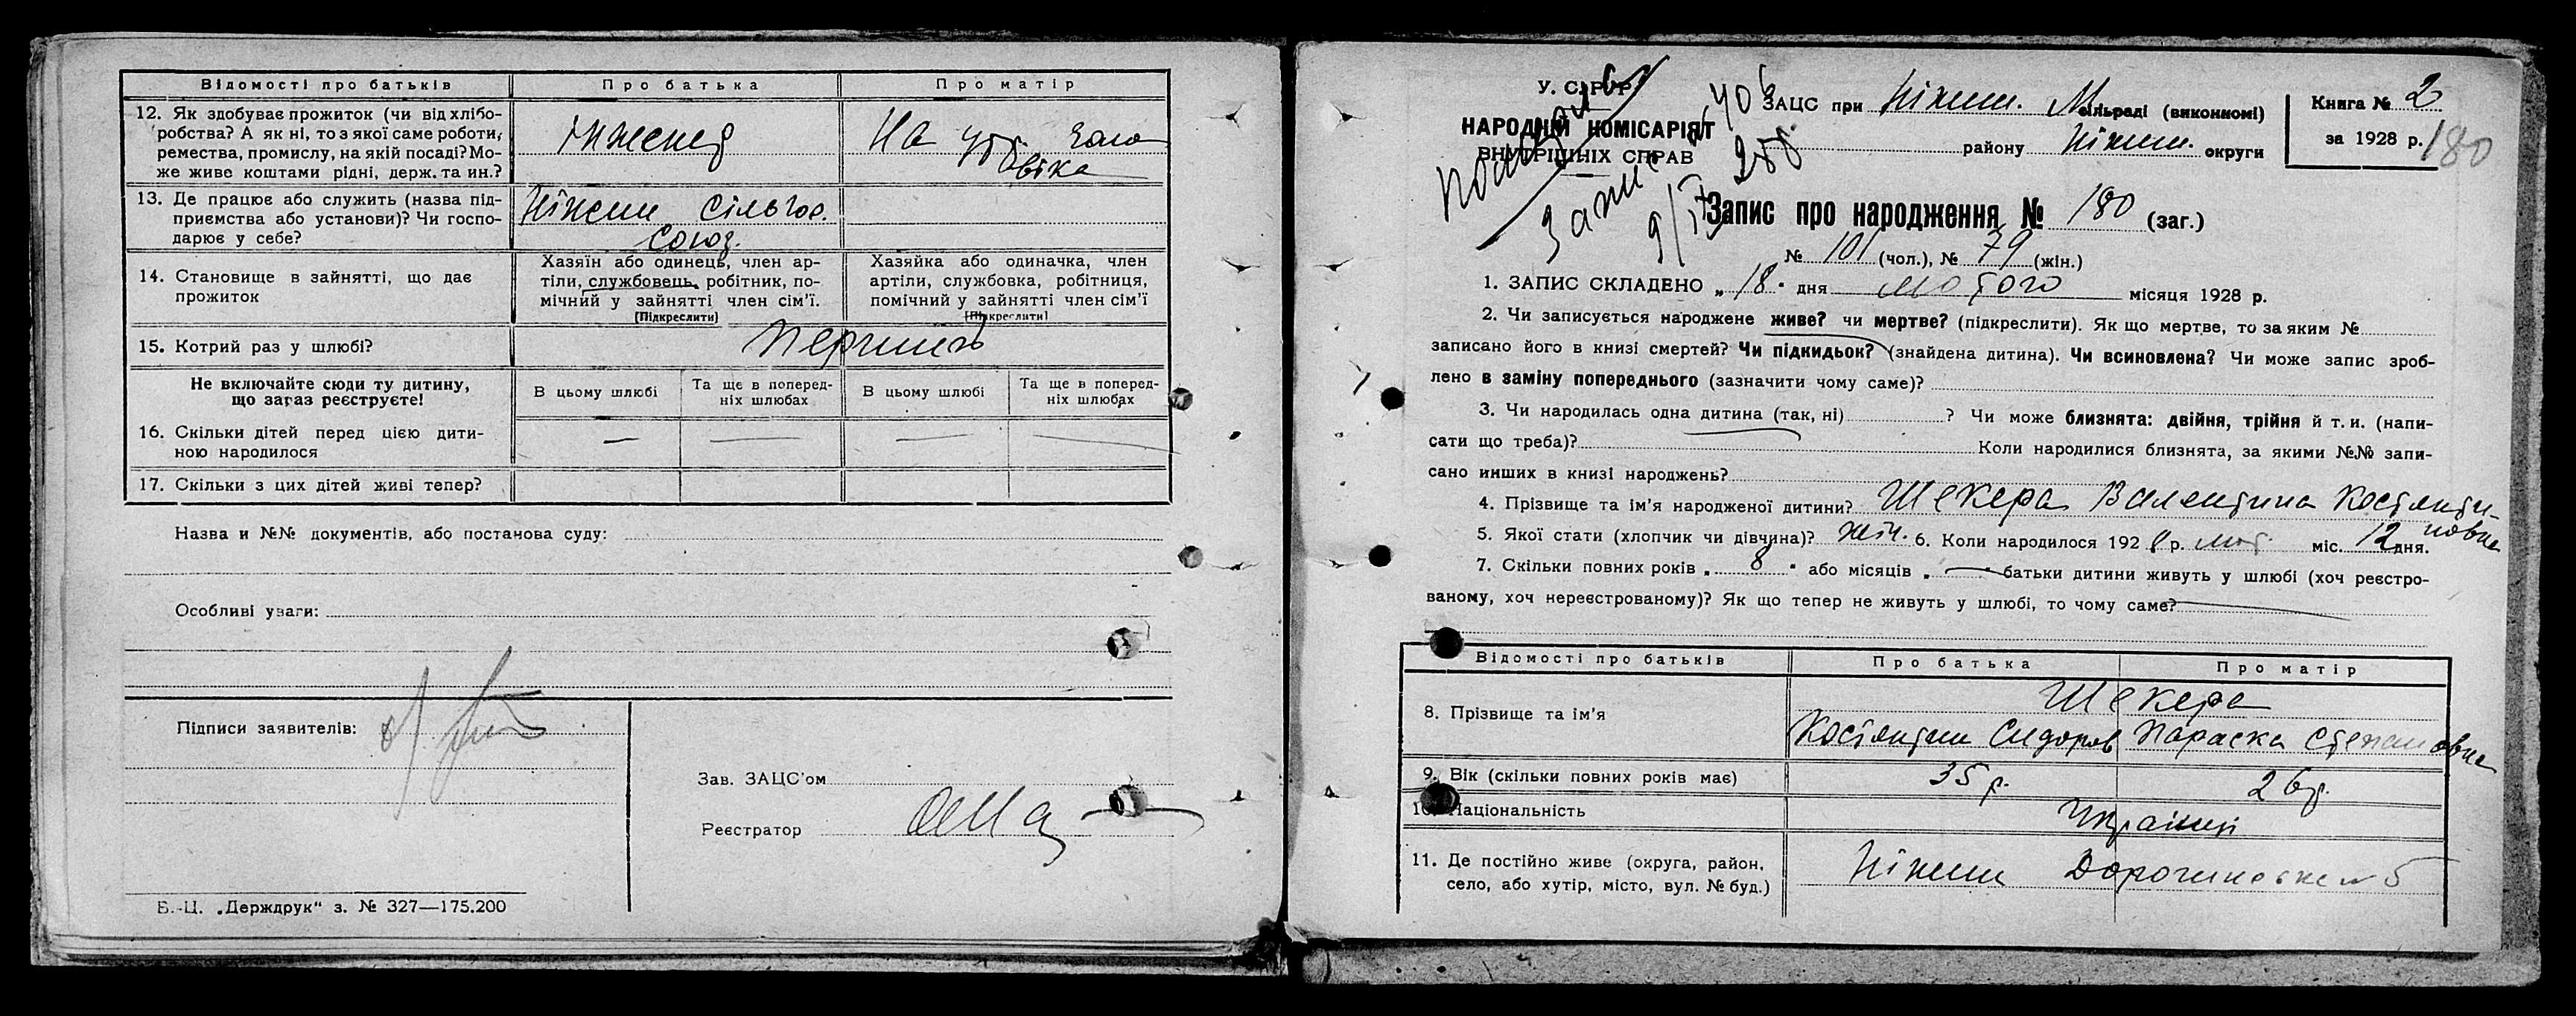 Відомості про батьків Про батька Про матір
12. Як здобуває прожиток (чи від хлібо-
робства? А як ні, то з якої саме роботи,
ремества, промислу, на якій посаді? Мо-
же живе коштами рідні, держ. та ин.?
інженер
На утр. чоло
віка
13. Де працює або служить (назва під-
приємства або установи)? Чи госпо-
дарює у себе?
Ніжин Сільгос.
Союз.
14. Становище в зайнятті, що дає
прожиток
Хазяїн або одинець, член ар-
тіли, службовець, робітник, по-
мічний у зайнятті член сім'ї.
(Підкреслити)
Хазяйка або одиначка, член
артіли, службовка, робітниця,
помічний у зайнятті член сім'ї
(Підкреслити)
15. Котрий раз у шлюбі?
Не включайте сюди ту дитину,
що зараз реєструєте!
В цьому шлюбі
Та ще в поперед-
ніх шлюбах
В цьому шлюбі
Та ще в поперед-
ніх шлюбах
16. Скільки дітей перед цією дити-
ною народилося
— — — —
17. Скільки з цих дітей живі тепер?
Назва и №№ документів, або постанова суду:
Особливі уваги:
Підписи заявителів:
Зав. ЗАЦС'ом
Реєстратор
Б.-Ц. „Держдрук" з. № 327—175.200
У. С. Р. Р.
НАРОДНІЙ КОМІСАРІЯТ
ВНУТРІШНІХ СПРАВ
ЗАЦС при Ніжин. М сільраді (виконкомі)
району Ніжин. округи
Книга № 2
за 1928 р.
180
Запис про народження № 180 (заг.)
№ 101 (чол.), № 79 (жін.)
1. ЗАПИС СКЛАДЕНО „ 18 " дня лютого місяця 1928 р.
2. Чи записується народжене живе? чи мертве? (підкреслити). Як що мертве, то за яким №
записано його в книзі смертей? Чи підкидьок? (знайдена дитина). Чи всиновлена? Чи може запис зроб-
лено в заміну попереднього (зазначити чому саме)?
3. Чи народилась одна дитина (так, ні) ? Чи може близнята: двійня, трійня й т. и. (напи-
сати що треба)? Коли народилися близнята, за якими №№ запи-
сано инших в книзі народжень?
4. Прізвище та ім'я народженої дитини? Шекера Валентина Костянти-
новна
5. Якої стати (хлопчик чи дівчина)? жін. 6. Коли народилося 192 8 р. лют. міс. 12 дня.
7. Скільки повних років „ 8 " або місяців „ — " батьки дитини живуть у шлюбі (хоч реєстро-
ваному, хоч нереєстрованому)? Як що тепер не живуть у шлюбі, то чому саме?
Відомості про батьків Про батька Про матір
8. Прізвище та ім'я
Шекера
Костянтин Сидоров Параска Степановна
9. Вік (скільки повних років має) 35 р. 26 р.
10. Національність Українці
11. Де постійно живе (округа, район,
село, або хутір, місто, вул. № буд.)
Ніжин 5